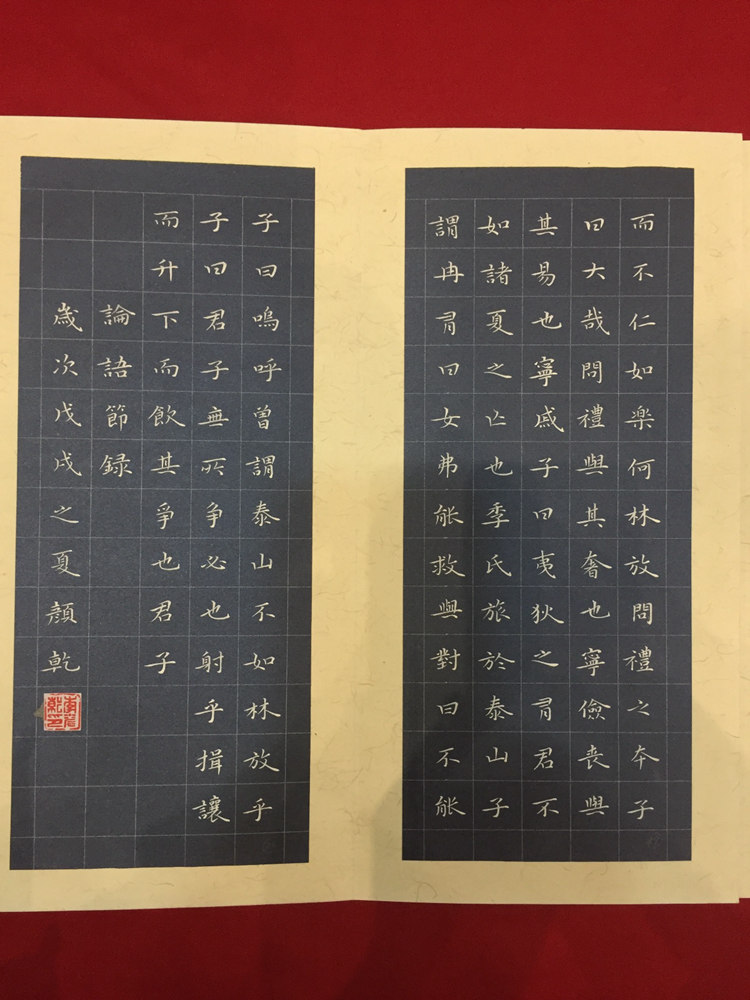 而不仁如樂何林放問禮之本子
曰大哉問禮與其奢也寧儉喪與
其易也寧戚子曰夷狄之有君不
如諸夏之亡也季氏旅於泰山子
謂冉有曰女弗能救與對曰不能
子曰嗚呼曾謂泰山不如林放乎
子曰君子無所争必也射乎揖讓
而升下而飲其爭也君子
論語節録
歲次戊戌之夏顏乾